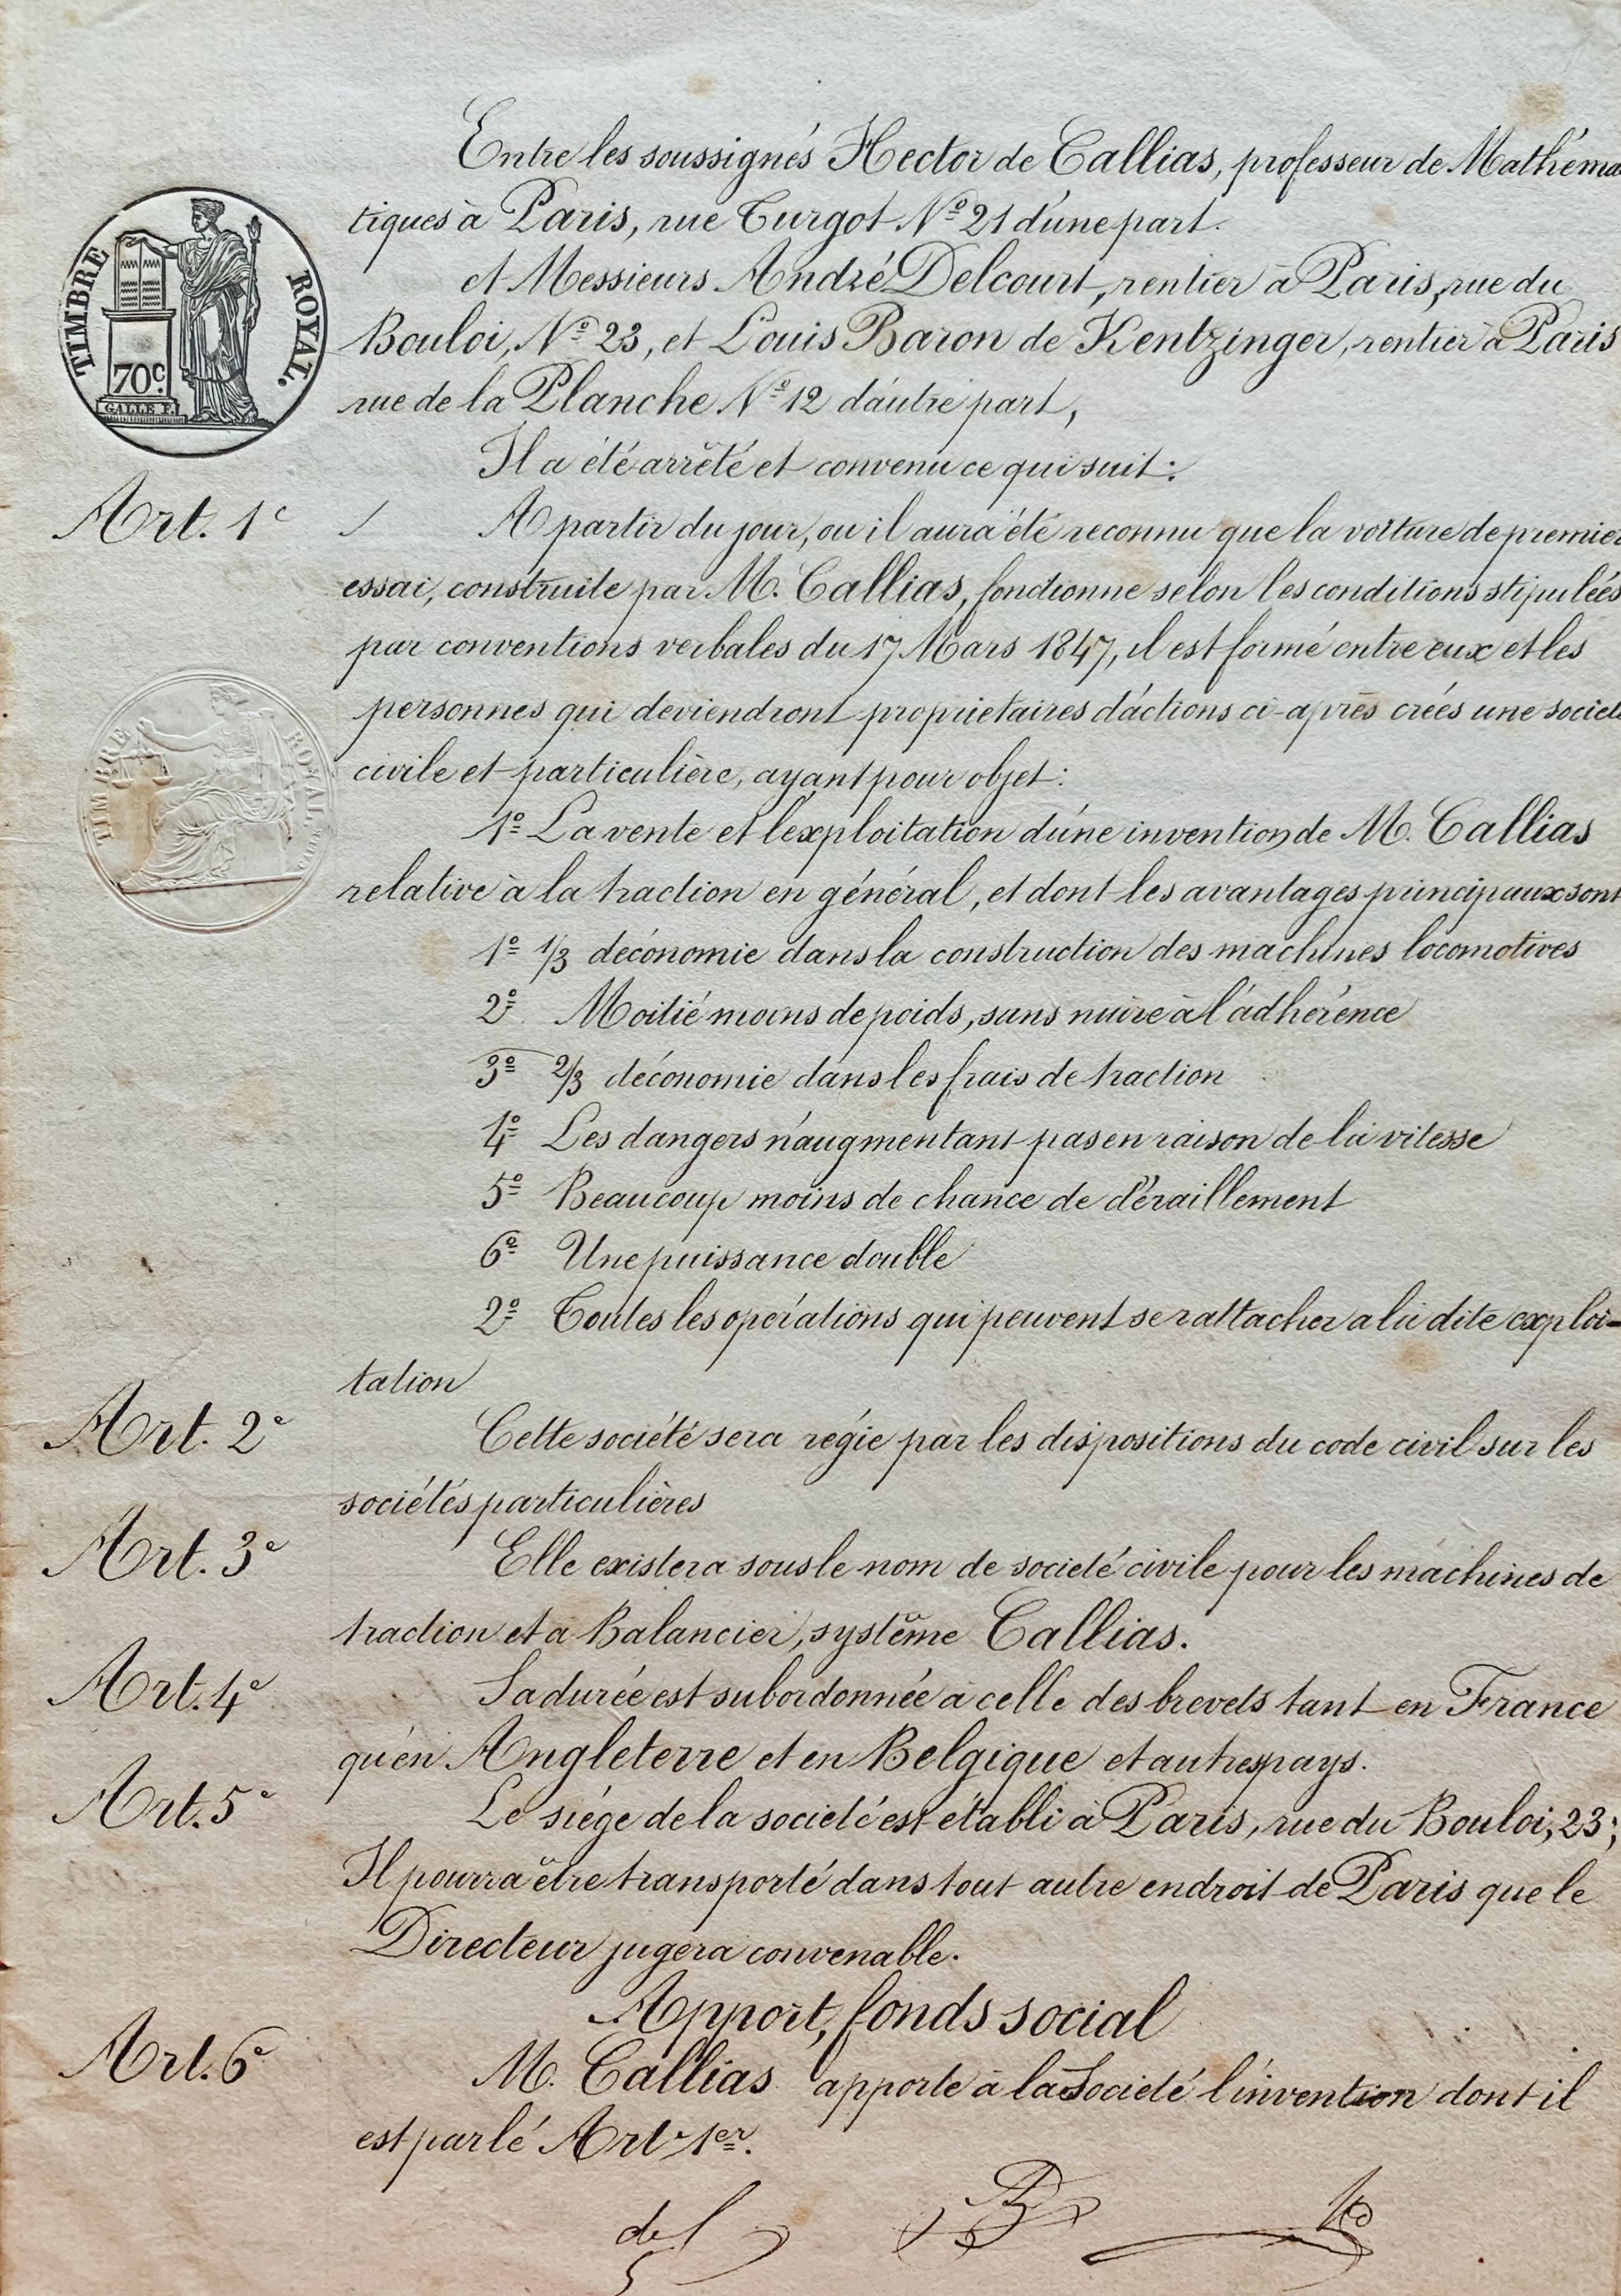 Entre les soussignés Hector de Callias, professeur de Mathéma
tiques à Paris, rue Turgot Nº 21 d'une part.
et Messieurs André Delcourt, rentier à Paris, rue du
Bouloi, Nº 23, et Louis Baron de Kentzinger, rentier à Paris
rue de la Planche Nº 12 d'autre part,
TIMBRE ROYAL.
70c.
GALLE F.
Il a été arrêté et convenu ce qui suit:
Art. 1e
A partir du jour, ou il aura été reconnu que la voiture de premier
essai, construite par M. Callias, fonctionne selon les conditions stipulées
par conventions verbales du 17 Mars 1847, il est formé entre eux et les
personnes qui deviendront propriétaires d'actions ci-après créés une societé
civile et particulière, ayant pour objet:
TIMBRE ROYAL
1º La vente et l'exploitation d'une invention de M. Callias
relative à la traction en général, et dont les avantages principaux sont
1º 1/3 d'économie dans la construction des machines locomotives
2º Moitié moins de poids, sans nuire à l'adhérence
3º 2/3 d'économie dans les frais de traction
4º Les dangers n'augmentant pas en raison de la vitesse
5º Beaucoup moins de chance de déraillement
6º Une puissance double
2º Toutes les opérations qui peuvent se rattacher a la dite exploi-
tation
Art. 2e
Cette société sera régie par les dispositions du code civil sur les
sociétés particulières
Art. 3e
Elle existera sous le nom de societé civile pour les machines de
traction et à Balancier, système Callias.
Art. 4e
Sa durée est subordonnée à celle des brevets tant en France
qu'en Angleterre et en Belgique et autres pays.
Art. 5e
Le siége de la societé est établi à Paris, rue du Bouloi, 23;
Il pourra être transporté dans tout autre endroit de Paris que le
Directeur jugera convenable.
Apport, fonds social
Art. 6e
M. Callias apporte à la Societé l'invention dont il
est parlé Art. 1er.